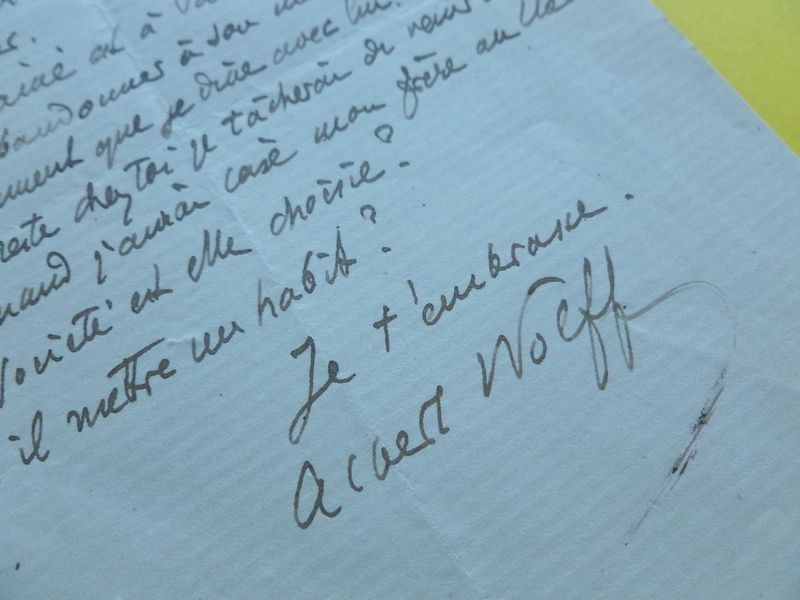 est à
bandonner à son
que je dîne avec lui.
reste chez toi je tâcherai de
j'aurai casé mon frère au
société est elle choisie?
il mettre un habit?
Je t'embrasse.
Albert Wolff